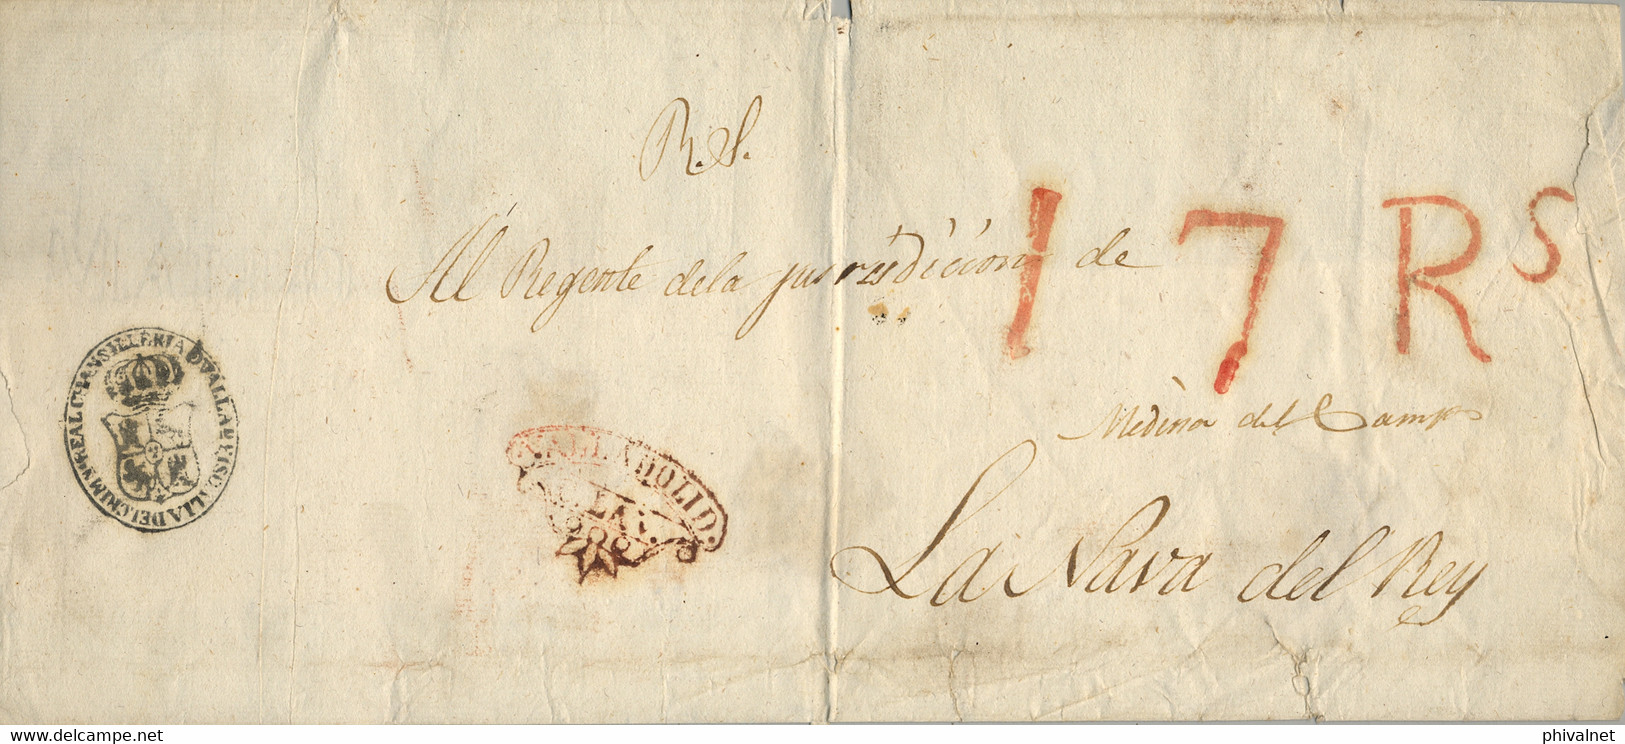 R.S.
Al Regente dela jurisdicion de
17 Rs
Medina del Campo
La Nava del Rey
REAL CHANSILLERIA D VALLAD FISCALIA DEL CRIMN
VALLADOLID.
delcampe.net
phivalnet